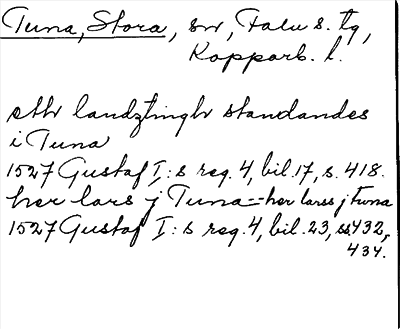 Tuna, Stora, sn, Falu s. tg,
Kopparb. l.
ether landztingh standandes
i Tuna
1527 Gustaf I:s reg. 4, bil. 17, s. 418.
her lars j Tuna = her larss j tuna
1527 Gustaf I:s reg. 4, bil. 23, ss. 432,
434.